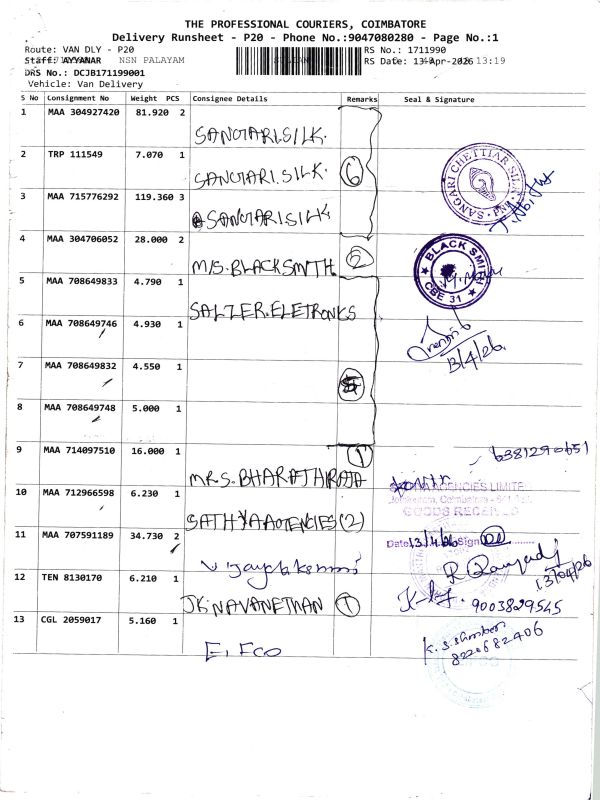 THE PROFESSIONAL COURIERS, COIMBATORE
Delivery Runsheet - P20 - Phone No.:9047080280 - Page No.:1
Route: VAN DLY - P20
RS No.: 1711990
Staff: AYYANAR NSN PALAYAM
RS Date: 13-Apr-2026 13:19
DRS No.: DCJB171199001
Vehicle: Van Delivery
S No Consignment No Weight PCS Consignee Details Remarks Seal & Signature
1 MAA 304927420 81.920 2
SANGARI.SILK.
2 TRP 111549 7.070 1
SANGARI.SILK. 6
SANGARI CHETTIAR SILK
3 MAA 715776292 119.360 3
SANGARISILK
4 MAA 304706052 28.000 2
M/S.BLACKSMITH. 2
BLACK SMITH
CBE 31
5 MAA 708649833 4.790 1
SALZER.ELETRONKS
6 MAA 708649746 4.930 1
13/4/26.
7 MAA 708649832 4.550 1
8 MAA 708649748 5.000 1
9 MAA 714097510 16.000 1
1
6381290651
MRS.BHARATHIRAJA
10 MAA 712966598 6.230 1
AGENCIES LIMITE
GOODS RECE
SATHYA AGENCIES (2)
11 MAA 707591189 34.730 2
Date 13/4/26 Sign
12 TEN 8130170 6.210 1
13/04/26
JK NAVANETHAN 1
9003829545
13 CGL 2059017 5.160 1
8220682406